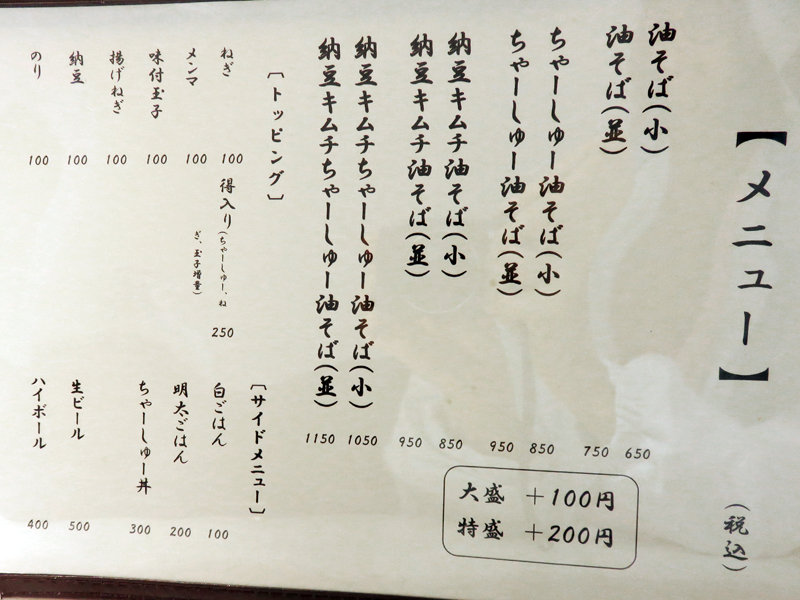 【メニュー】
(税込)
油そば(小) 650
油そば(並) 750
ちゃーしゅー油そば(小) 850
ちゃーしゅー油そば(並) 950
納豆キムチ油そば(小) 850
納豆キムチ油そば(並) 950
納豆キムチちゃーしゅー油そば(小) 1050
納豆キムチちゃーしゅー油そば(並) 1150
大盛 +100円
特盛 +200円
[トッピング]
ねぎ 100
メンマ 100
味付玉子 100
揚げねぎ 100
納豆 100
のり 100
得入り(ちゃーしゅー、ね
ぎ、玉子増量) 250
[サイドメニュー]
白ごはん 100
明太ごはん 200
ちゃーしゅー丼 300
生ビール 500
ハイボール 400